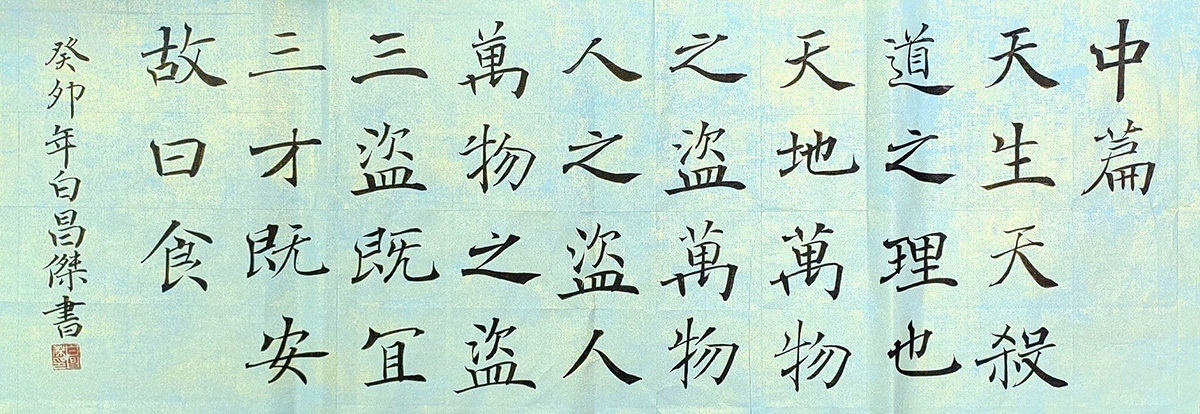 中篇
天生天殺
道之理也
天地萬物
之盜萬物
人之盜人
萬物之盜
三盜既宜
三才既安
故曰食
癸卯年白昌傑書